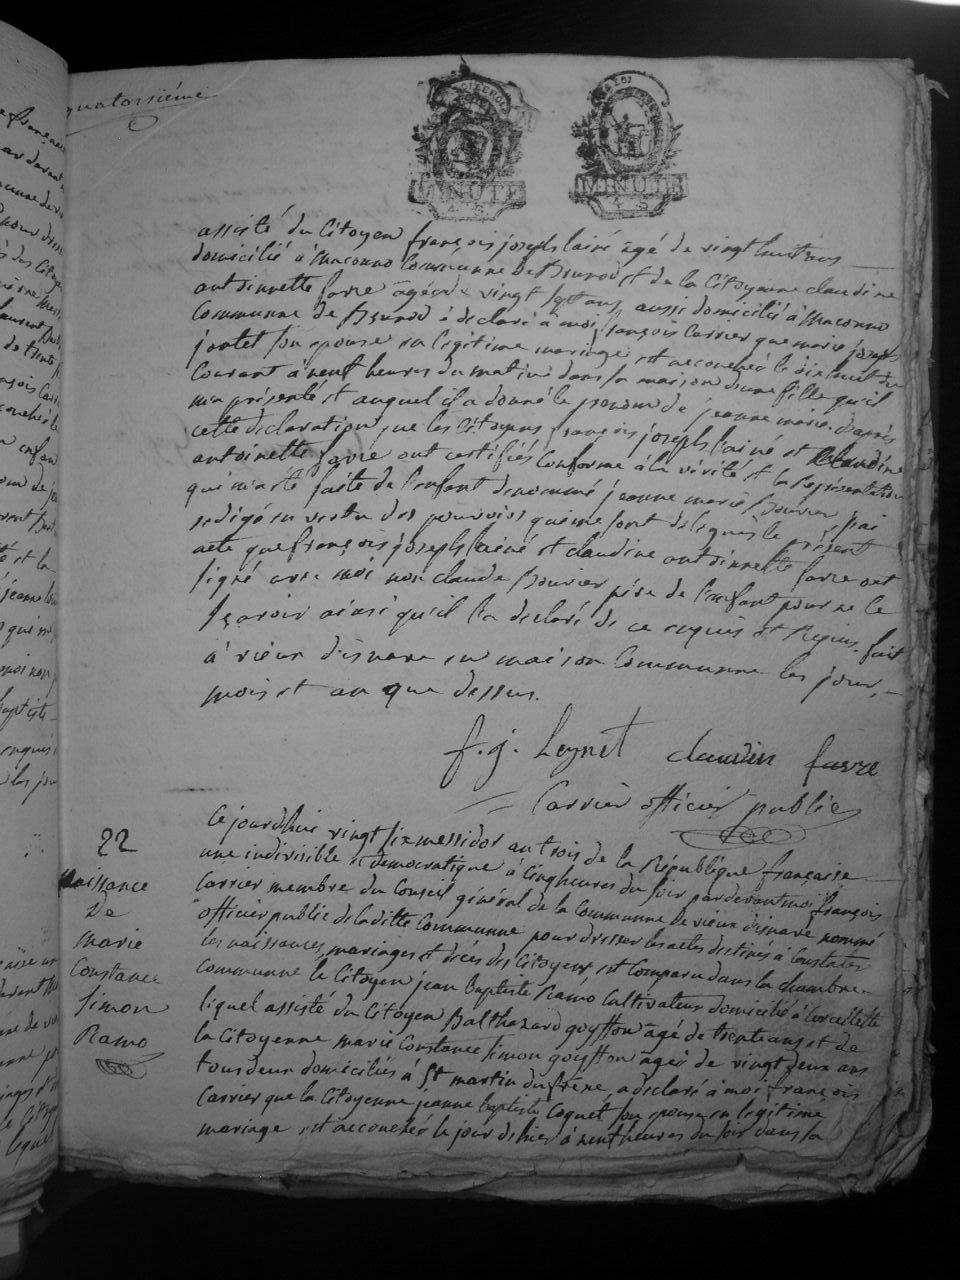 quatorsiéme
MINUTE
4 S
MINUTE
4 S
assisté du Citoyen françois joseph lainé agé de vingt huit ans
domicilié à Maconno Commune de Brenod et de la Citoyenne claudine
antoinette favre agée de vingt sept ans aussi domicilié à Maconno
Commune de Brenod à déclaré à moi françois Carrier que marie joseph
jantet son epouse en légitime mariage est accouchée le dix huit du
Courant à neuf heures du matin dans sa maison d'une fille qu'il
m'a présenté et auquel il a donné le prenom de jeanne marie, d'après
cette déclaration que les Citoyens françois joseph lainé et Claudine
antoinette favre ont certifiés Conforme à la vérité et la représentation
qui m'a été faite de l'enfant denommé jeanne marie Bouvier j'ai
redigé en vertu des pouvoirs qui me sont delegués le présent
acte que françois joseph lainé et claudine antoinette favre ont
signé avec moi non claude Bouvier père de l'enfant pour ne le
sçavoir ainsi qu'il l'a déclaré de ce enquis et Requis, fait
à vieux d'isnave en maison Commune les jour,
mois et an que dessus.
f. j. Leynet claudin favre
Carrier officier public
22
Naissance
De
Marie
Constance
Simon
Ramo
Ce jourdhui vingt six messidor an trois de la République française
une indivisible et democratique à cinq heures du soir par devant moi françois
Carrier membre du Conseil général de la Commune de vieux disnave nommé
officier public de la ditte Commune pour dresser les actes destinés à Constater
les naissances, mariages et décés des Citoyens est Comparu dans la chambre
Commune le Citoyen jean Baptiste Ramo Cultivateur domicilié à
lequel assisté du Citoyen Balthazard goyffon agé de trente ans et de
la Citoyenne marie Constance Simon goyffon agée de vingt deux ans
tous deux domiciliés à St martin du frêne, a déclaré à moi françois
Carrier que la Citoyenne jeanne Baptiste Coquet son epouse en legitime
mariage est accouchée le jour d'hier à neuf heures du soir dans sa